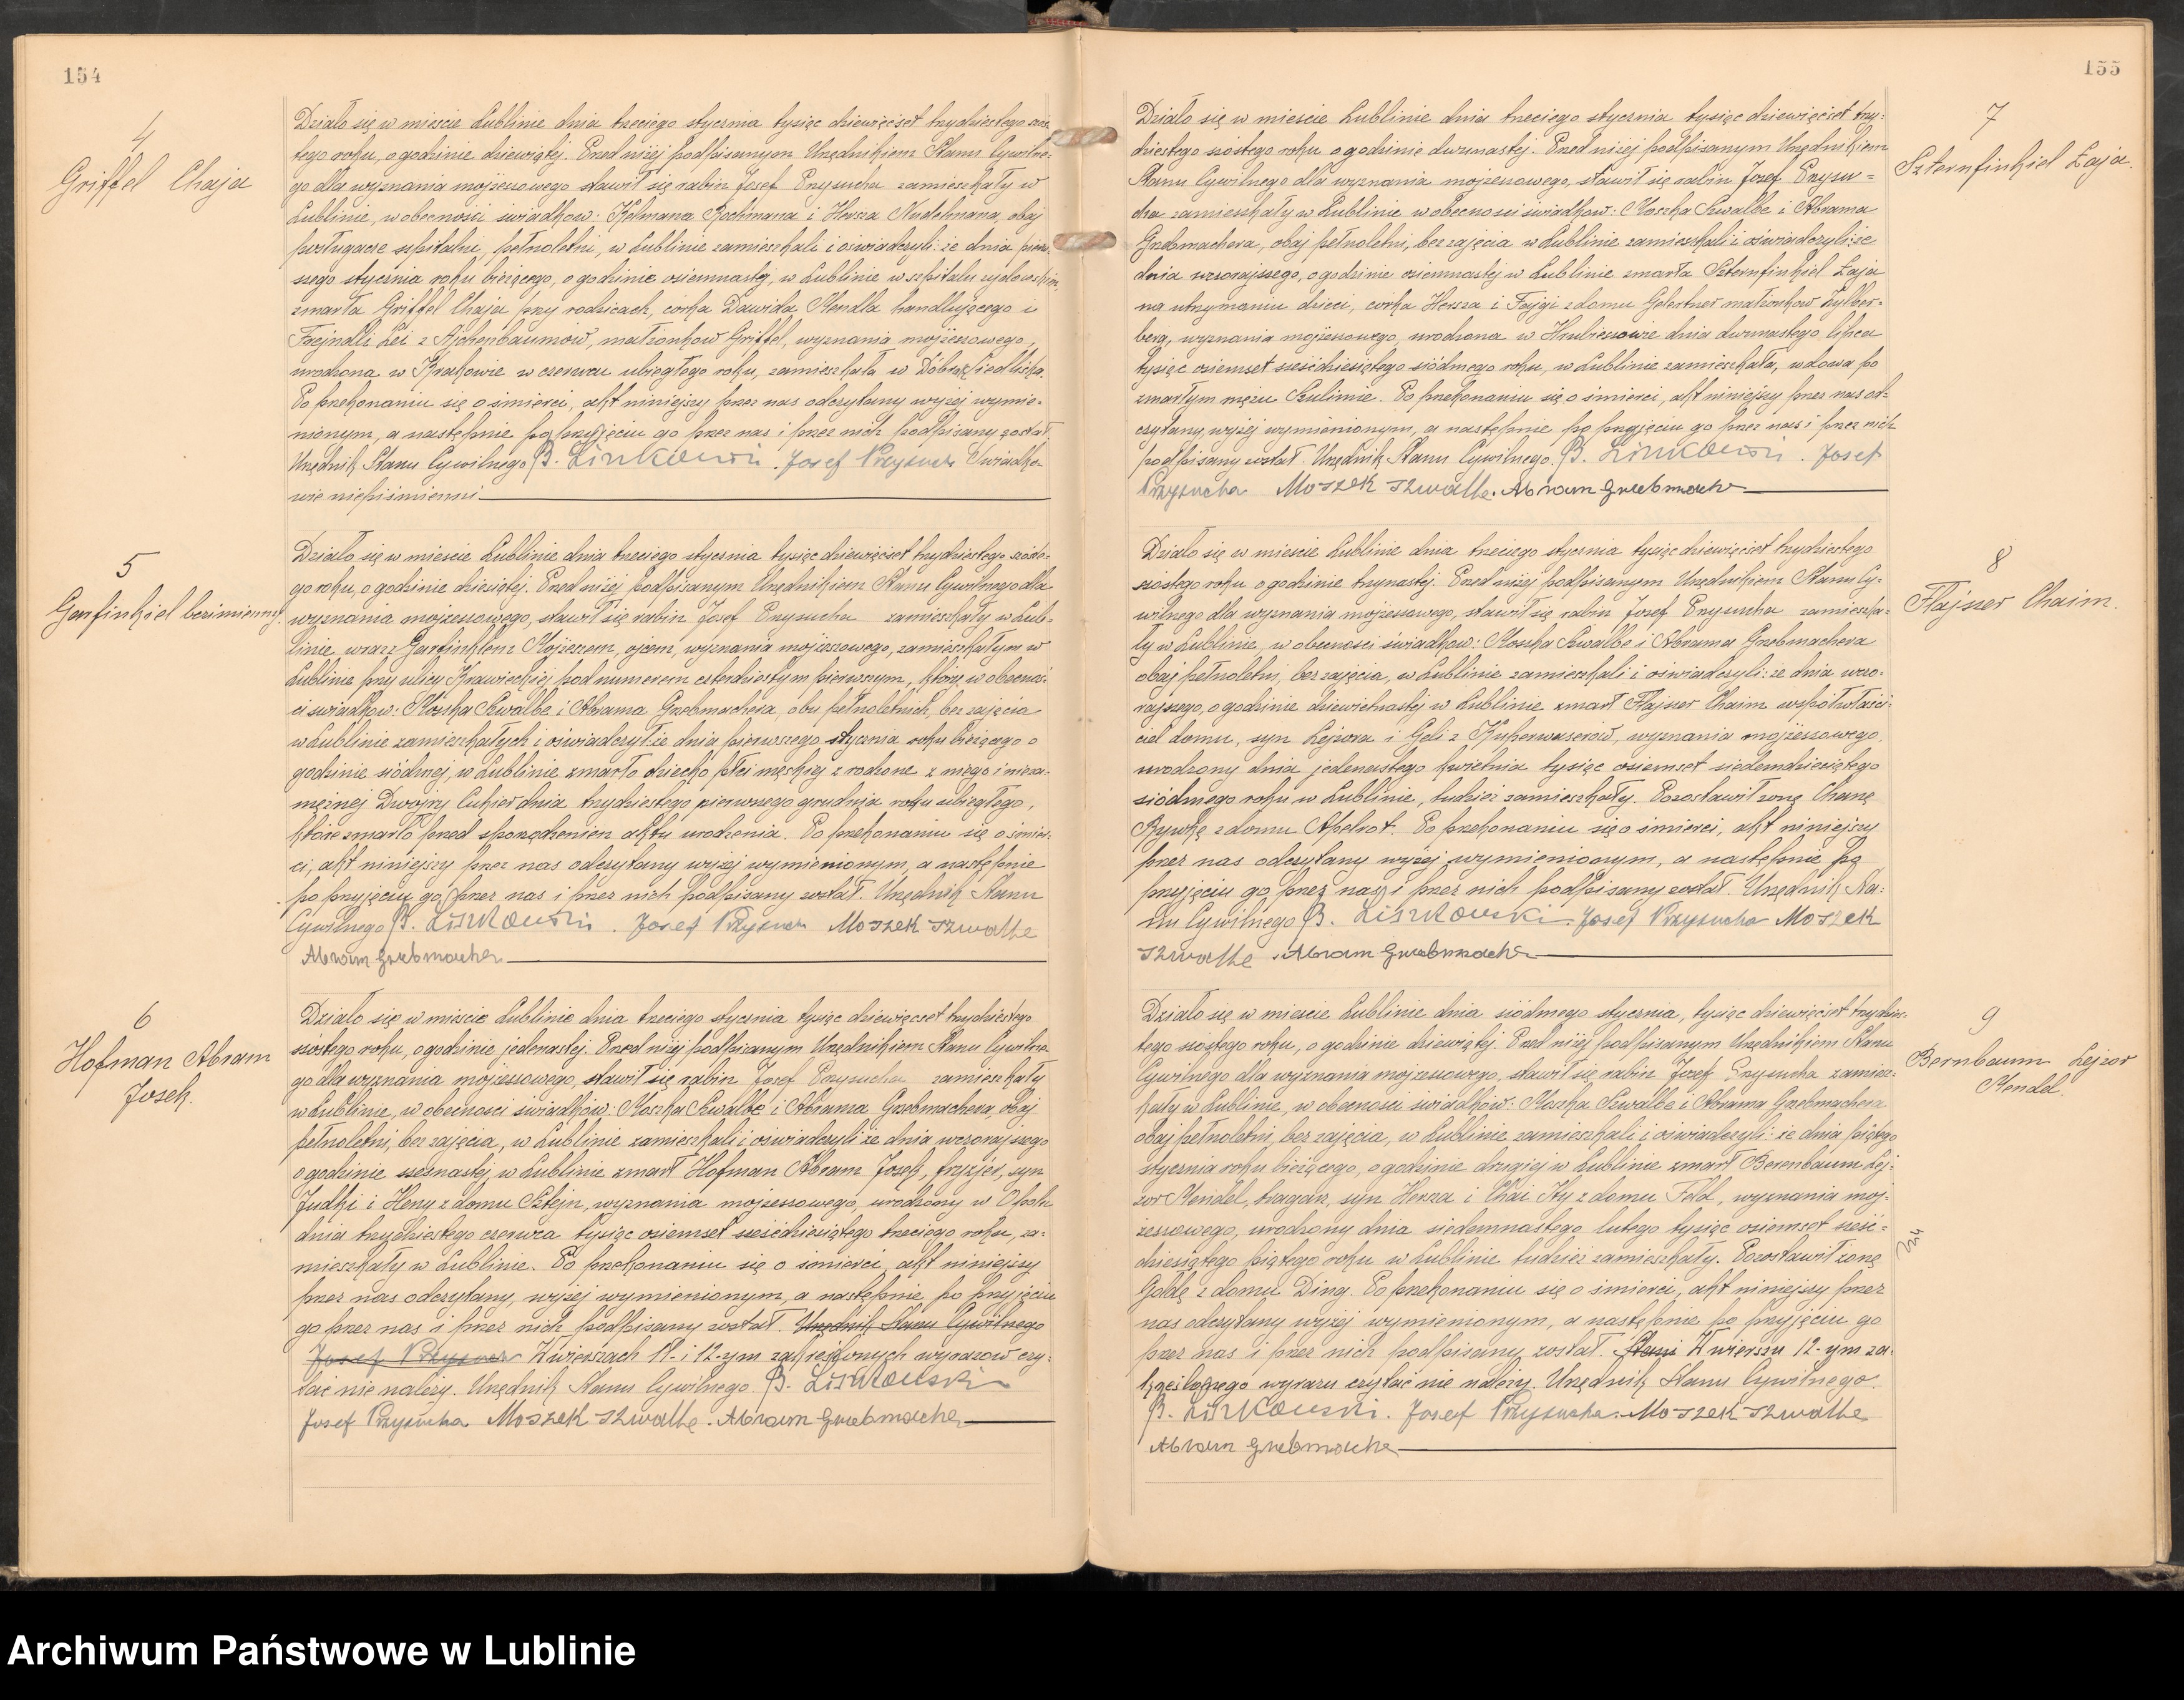 154
4
Griffel Chaja
Działo się w mieście Lublinie dnia trzeciego stycznia tysiąc dziewięćset trzydziestego szós-
tego roku, o godzinie dziewiątej. Przed niżej podpisanym Urzędnikiem Stanu Cywilne-
go dla wyznania mojżeszowego stawił się rabin Josef Przysucha zamieszkały w
Lublinie, w obecności świadków: Kelmana Rochmana i Hersza Nudelmana, obaj
posługacze szpitalni, pełnoletni, w Lublinie zamieszkali i oświadczyli: że dnia pierw-
szego stycznia roku bieżącego, o godzinie osiemnastej, w Lublinie w szpitalu żydowskim,
zmarła Griffel Chaja przy rodzicach, córka Dawida Mendla handlującego i
Frejndli Lei z Ajchenbaumów, małżonków Griffel, wyznania mojżeszowego,
urodzona w Krakowie w czerwcu ubiegłego roku, zamieszkała w
Po przekonaniu się o śmierci, akt niniejszy przez nas odczytany wyżej wymie-
nionym, a następnie po przyjęciu go przez nas i przez nich podpisany został.
Urzędnik Stanu Cywilnego B. Liszkowski. Josef Przysucha Świadko-
wie niepiśmienni
5
Garfinkiel bezimienny.
Działo się w mieście Lublinie dnia trzeciego stycznia tysiąc dziewięćset trzydziestego szóste-
go roku, o godzinie dziesiątej. Przed niżej podpisanym Urzędnikiem Stanu Cywilnego dla
wyznania mojżeszowego, stawił się rabin Josef Przysucha zamieszkały w Lub-
linie wraz z Garfinklem Mojżeszem, ojcem, wyznania mojżeszowego, zamieszkałym w
Lublinie przy ulicy Krawieckiej pod numerem czterdziestym pierwszym, którzy w obecnoś-
ci świadków: Moszka Szwalbe i Abrama Grzebmachera, obu pełnoletnich, bez zajęcia
w Lublinie zamieszkałych i oświadczył: że dnia pierwszego stycznia roku bieżącego o
godzinie siódmej, w Lublinie zmarło dziecko płci męskiej zrodzone z niego i nieza-
mężnej Dwojry Cukier dnia trzydziestego pierwszego grudnia roku ubiegłego,
które zmarło przed sporządzeniem aktu urodzenia. Po przekonaniu się o śmier-
ci, akt niniejszy przez nas odczytany wyżej wymienionym, a następnie
po przyjęciu go przez nas i przez nich podpisany został. Urzędnik Stanu
Cywilnego B. Liszkowski. Josef Przysucha Moszek Szwalbe
Abram Grzebmacher
6
Hofman Abram
Josek.
Działo się w mieście Lublinie dnia trzeciego stycznia tysiąc dziewięćset trzydziestego
szóstego roku, o godzinie jedenastej. Przed niżej podpisanym Urzędnikiem Stanu Cywilne-
go dla wyznania mojżeszowego, stawił się rabin Josef Przysucha zamieszkały
w Lublinie, w obecności świadków: Moszka Szwalbe i Abrama Grzebmachera, obaj
pełnoletni, bez zajęcia, w Lublinie zamieszkali i oświadczyli że dnia wczorajszego
o godzinie szesnastej, w Lublinie zmarł Hofman Abram Josek, fryzjer, syn
Judki i Heny z domu Sztejn, wyznania mojżeszowego, urodzony w Opolu
dnia trzydziestego czerwca tysiąc osiemset sześćdziesiątego trzeciego roku, za-
mieszkały w Lublinie. Po przekonaniu się o śmierci, akt niniejszy
przez nas odczytany, wyżej wymienionym, a następnie po przyjęciu
go przez nas i przez nich podpisany został. Urzędnik Stanu Cywilnego
Josef Przysucha W wierszach 11- i 12-ym zakreślonych wyrazów czy-
tać nie należy. Urzędnik Stanu Cywilnego B. Liszkowski
Josef Przysucha Moszek Szwalbe. Abram Grzebmacher
155
7
Szternfinkiel Łaja.
Działo się w mieście Lublinie dnia trzeciego stycznia tysiąc dziewięćset trzy-
dziestego szóstego roku o godzinie dwunastej. Przed niżej podpisanym Urzędnikiem
Stanu Cywilnego dla wyznania mojżeszowego, stawił się rabin Josef Przysu-
cha zamieszkały w Lublinie w obecności świadków: Moszka Szwalbe i Abrama
Grzebmachera, obaj pełnoletni, bez zajęcia w Lublinie zamieszkali i oświadczyli: że
dnia wczorajszego, o godzinie osiemnastej w Lublinie zmarła Szternfinkiel Łaja
na utrzymaniu dzieci, córka Hersza i Fajgi z domu Gelertner małżonków Zylber-
berg, wyznania mojżeszowego, urodzona w Hrubieszowie dnia dwunastego lipca
tysiąc osiemset sześćdziesiątego siódmego roku, w Lublinie zamieszkała, wdowa po
zmarłym mężu Szulimie. Po przekonaniu się o śmierci, akt niniejszy przez nas od-
czytany wyżej wymienionym, a następnie po przyjęciu go przez nas i przez nich
podpisany został. Urzędnik Stanu Cywilnego. B. Liszkowski. Josef
Przysucha Moszek Szwalbe. Abram Grzebmacher
8
Flajszer Chaim.
Działo się w mieście Lublinie dnia trzeciego stycznia tysiąc dziewięćset trzydziestego
szóstego roku o godzinie trzynastej. Przed niżej podpisanym Urzędnikiem Stanu Cy-
wilnego dla wyznania mojżeszowego, stawił się rabin Josef Przysucha zamieszka-
ły w Lublinie, w obecności świadków: Moszka Szwalbe i Abrama Grzebmachera
obaj pełnoletni, bez zajęcia, w Lublinie zamieszkali i oświadczyli: że dnia wczo-
rajszego, o godzinie dziewiętnastej w Lublinie zmarł Flajszer Chaim współwłaści-
ciel domu, syn Lejzora i Geli z Kuperwaserów, wyznania mojżeszowego,
urodzony dnia jedenastego kwietnia tysiąc osiemset siedemdziesiątego
siódmego roku w Lublinie, tudzież zamieszkały. Pozostawił żonę Chanę
Rywkę z domu Apelrot. Po przekonaniu się o śmierci, akt niniejszy
przez nas odczytany wyżej wymienionym, a następnie po
przyjęciu go przez nas i przez nich podpisany został. Urzędnik Sta-
nu Cywilnego B. Liszkowski. Josef Przysucha Moszek
Szwalbe. Abram Grzebmacher
9
Bernbaum Lejzor
Mendel.
Działo się w mieście Lublinie dnia siódmego stycznia, tysiąc dziewięćset trzydzies-
tego szóstego roku, o godzinie dziewiątej. Przed niżej podpisanym Urzędnikiem Stanu
Cywilnego dla wyznania mojżeszowego, stawił się rabin Josef Przysucha zamiesz-
kały w Lublinie, w obecności świadków: Moszka Szwalbe i Abrama Grzebmachera
obaj pełnoletni, bez zajęcia, w Lublinie zamieszkali i oświadczyli: że dnia piątego
stycznia roku bieżącego, o godzinie drugiej w Lublinie zmarł Berenbaum Lej-
zor Mendel, tragarz, syn Hersza i Chai Ity z domu Feld, wyznania moj-
żeszowego, urodzony dnia siedemnastego lutego tysiąc osiemset sześć-
dziesiątego piątego roku w Lublinie tudzież zamieszkały. Pozostawił żonę
Gołdę z domu Ding. Po przekonaniu się o śmierci, akt niniejszy przez
nas odczytany wyżej wymienionym, a następnie po przyjęciu go
przez nas i przez nich podpisany został. Stanu W wierszu 12-ym za-
kreślonego wyrazu czytać nie należy. Urzędnik Stanu Cywilnego.
B. Liszkowski. Josef Przysucha. Moszek Szwalbe
Abram Grzebmacher
Archiwum Państwowe w Lublinie